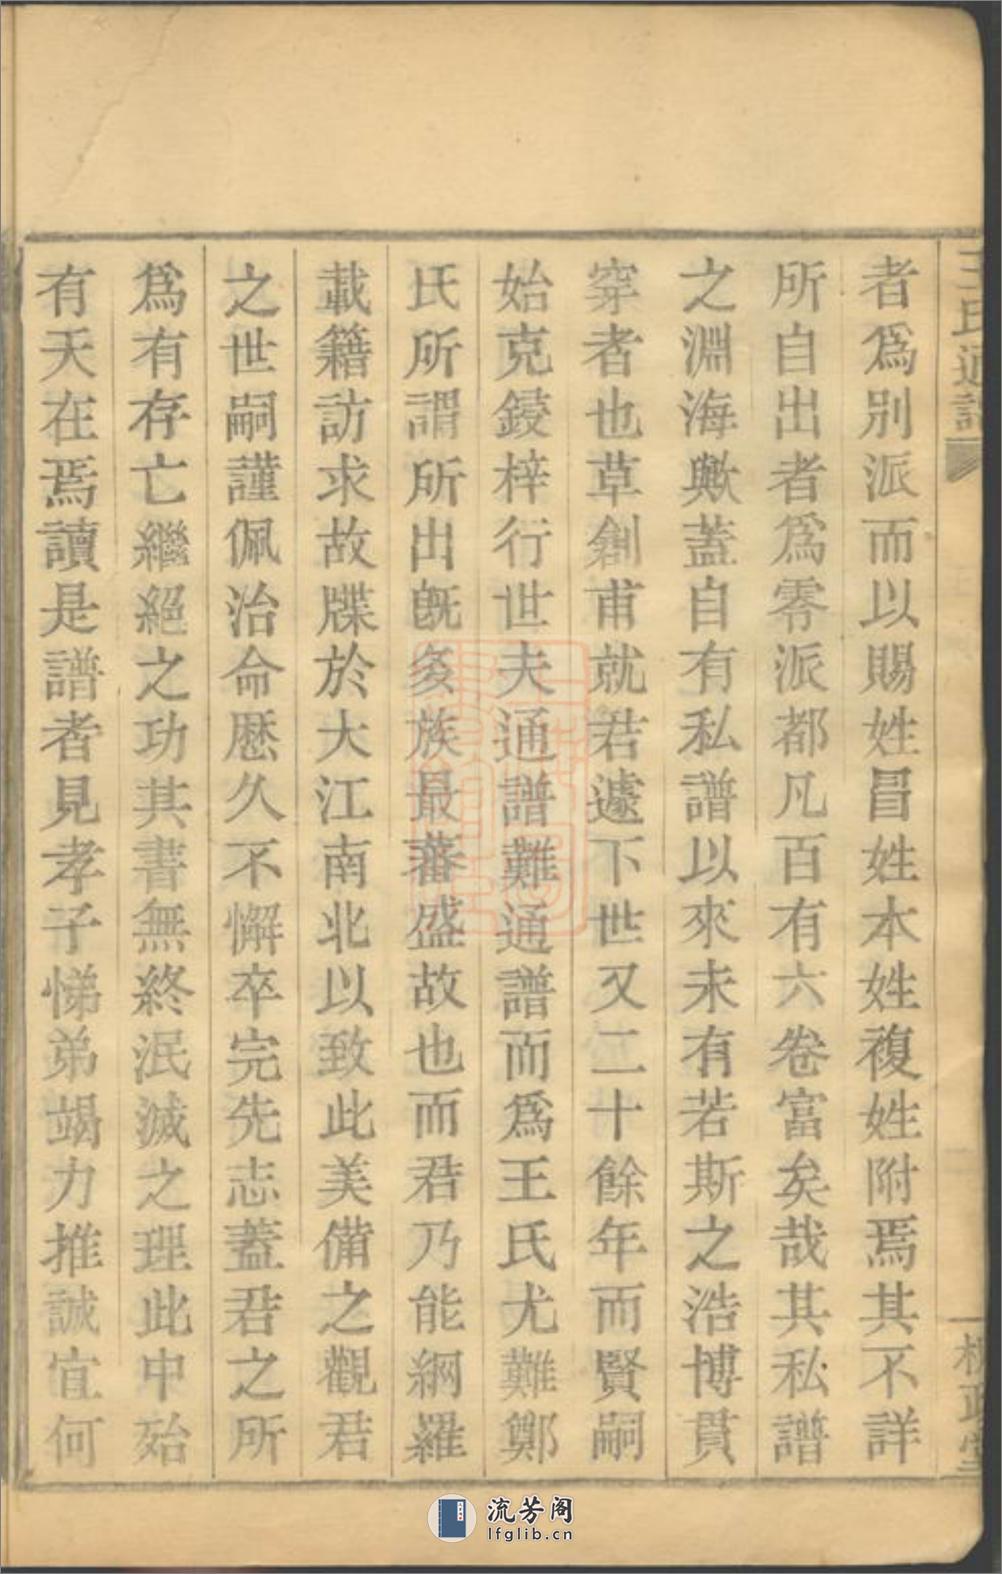 王氏通譜
者爲别派而以賜姓冒姓本姓複姓附焉其不詳
所自出者爲零派都凡百有六卷富矣哉其私譜
之淵海歟蓋自有私譜以來未有若斯之浩博貫
穿者也草創甫就君遽下世又二十餘年而賢嗣
始克鋟梓行世夫通譜難通譜而爲王氏尤難鄭
氏所謂所出旣多族最蕃盛故也而君乃能網羅
載籍訪求故牒於大江南北以致此美備之觀君
之世嗣謹佩治命歷久不懈卒完先志蓋君之所
爲有存亡繼絕之功其書無終泯滅之理此中殆
有天在焉讀是譜者見孝子悌弟竭力推誠宜何
流芳阁
lfglib.cn